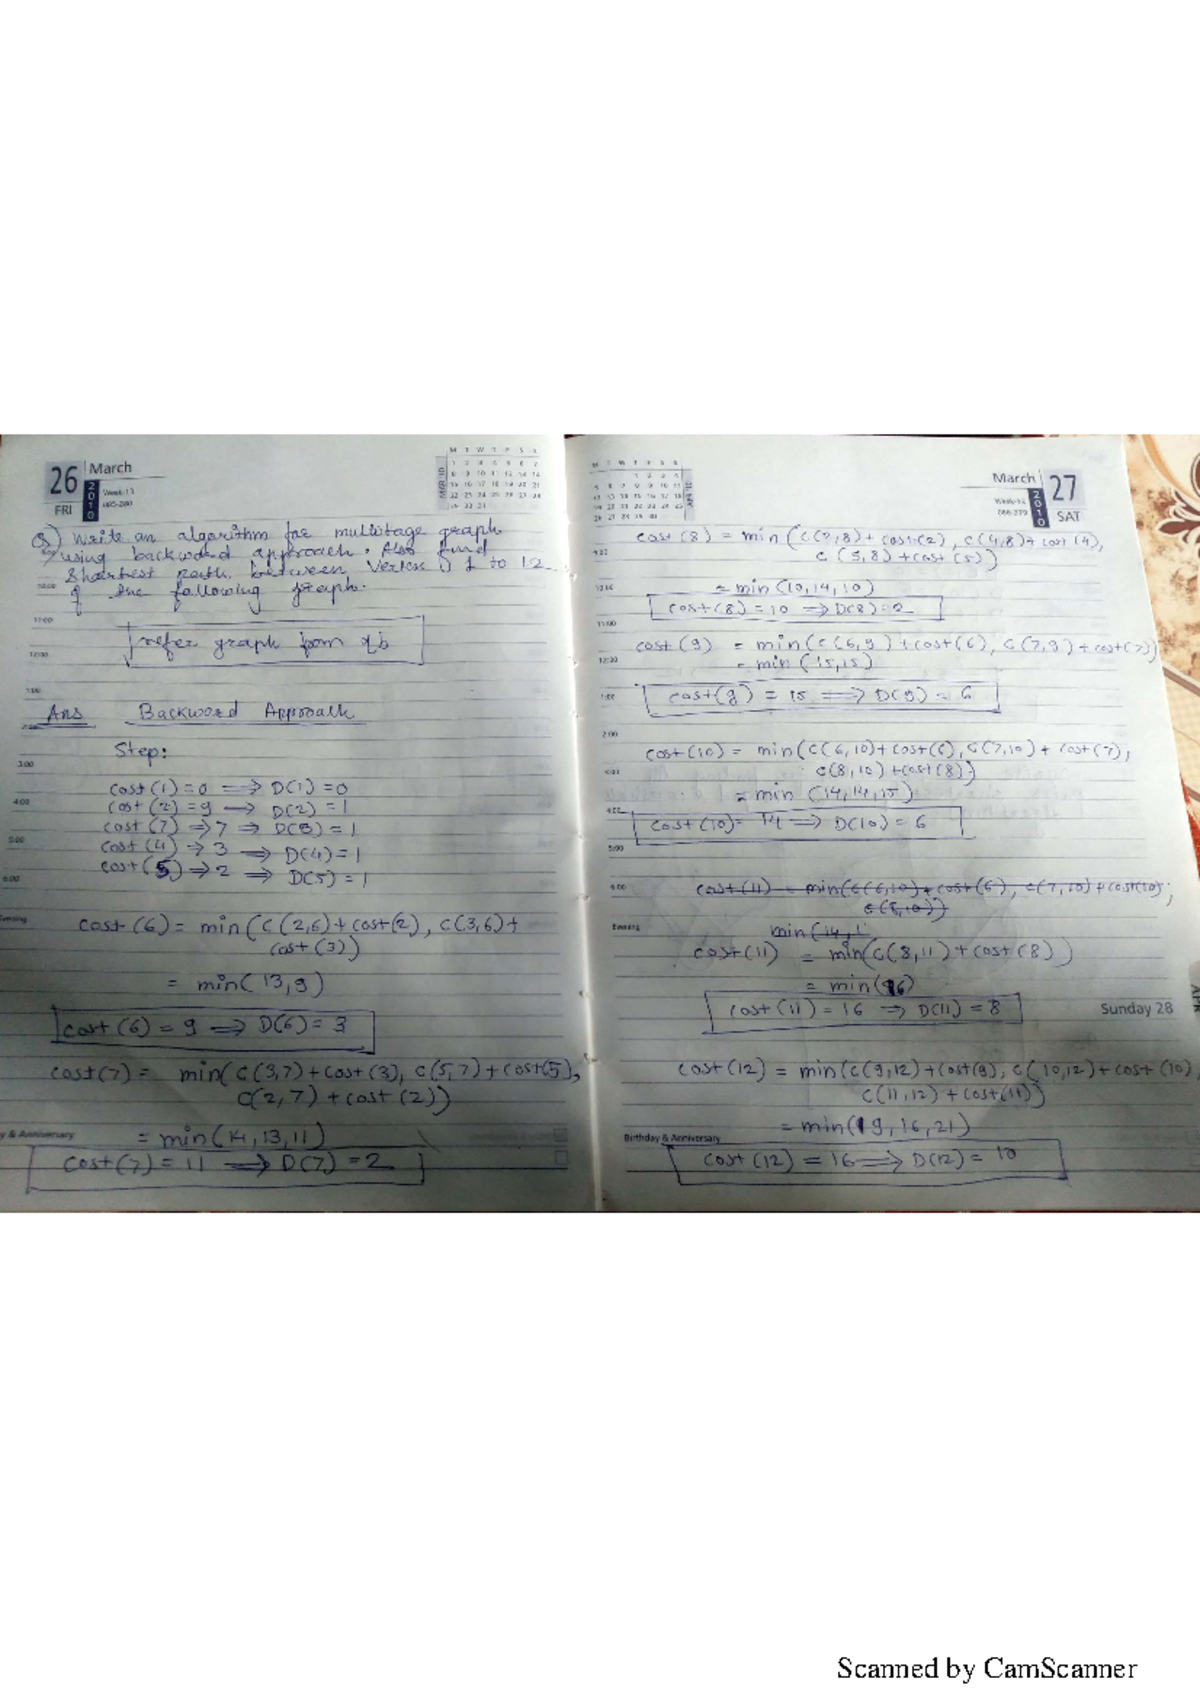 26 March
2010
Week-13
085-280
FRI
Q) Write an algorithm for multistage graph
using backword approach. Also find
Shortest path between Vertex 1 to 12
of the following graph.
refer graph from qb
Ans Backword Approach
Step:
cost (1) = 0 ⟹ D(1) = 0
cost (2) = 9 ⟶ D(2) = 1
cost (7) → 7 ⇒ D(3) = 1
cost (4) → 3 ⟹ D(4) = 1
cost (5) → 2 ⟹ D(5) = 1
cost (6) = min (C(2,6) + cost(2), C(3,6) +
cost (3))
= min( 13, 9)
cost (6) = 9 ⟹ D(6) = 3
cost(7) = min( C(3,7) + cost (3), C(5,7) + cost(5),
C(2,7) + cost (2))
= min( 14, 13, 11)
cost (7) = 11 ⟹ D(7) = 2
y & Anniversary
March 27
2010
SAT
cost (8) = min (C(2,8) + cost(2), C(4,8) + cost (4),
C (5,8) + cost (5))
= min (10, 14, 10)
cost (8) = 10 ⟹ D(8) = 2
cost (9) = min (C(6,9) + cost(6), C(7,9) + cost(7))
= min (15, 15)
cost (9) = 15 ⟹ D(9) = 6
cost (10) = min(C(6,10) + cost(6), C(7,10) + cost (7),
C(8,10) + cost (8))
= min (14, 14, 15)
cost (10) = 14 ⟹ D(10) = 6
cost (11) = min(C(6,10) + cost (6), C(7,10) + cost(10),
C(8,10))
min (14, 1
cost (11) = min(C(8,11) + cost (8))
= min(16)
cost (11) = 16 ⟶ D(11) = 8
Sunday 28
cost (12) = min(C(9,12) + cost(9), C(10,12) + cost (10),
C(11,12) + cost(11))
= min(19, 16, 21)
Birthday & Anniversary
cost (12) = 16 ⟹ D(12) = 10
Scanned by CamScanner